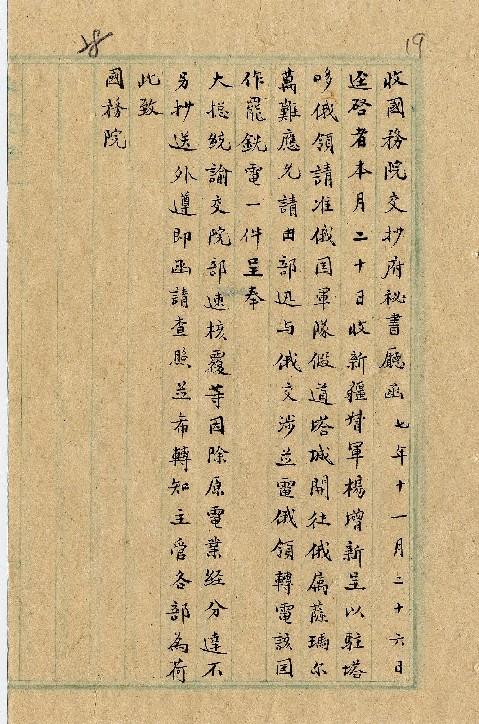 19
收國務院交抄府祕書廳函 七年十一月二十六日
逕啓者本月二十日收新疆督軍楊增新呈以駐塔
哆俄領請准俄国軍隊假道塔城開往俄屬薩瑪尔
萬難應允請由部迅与俄交涉並電俄領轉電該国
作罷銑電一件呈奉
大總統諭交院部速核覆等因除原電業經分達不
另抄送外遵即函請查照並希轉知主管各部為荷
此致
國務院